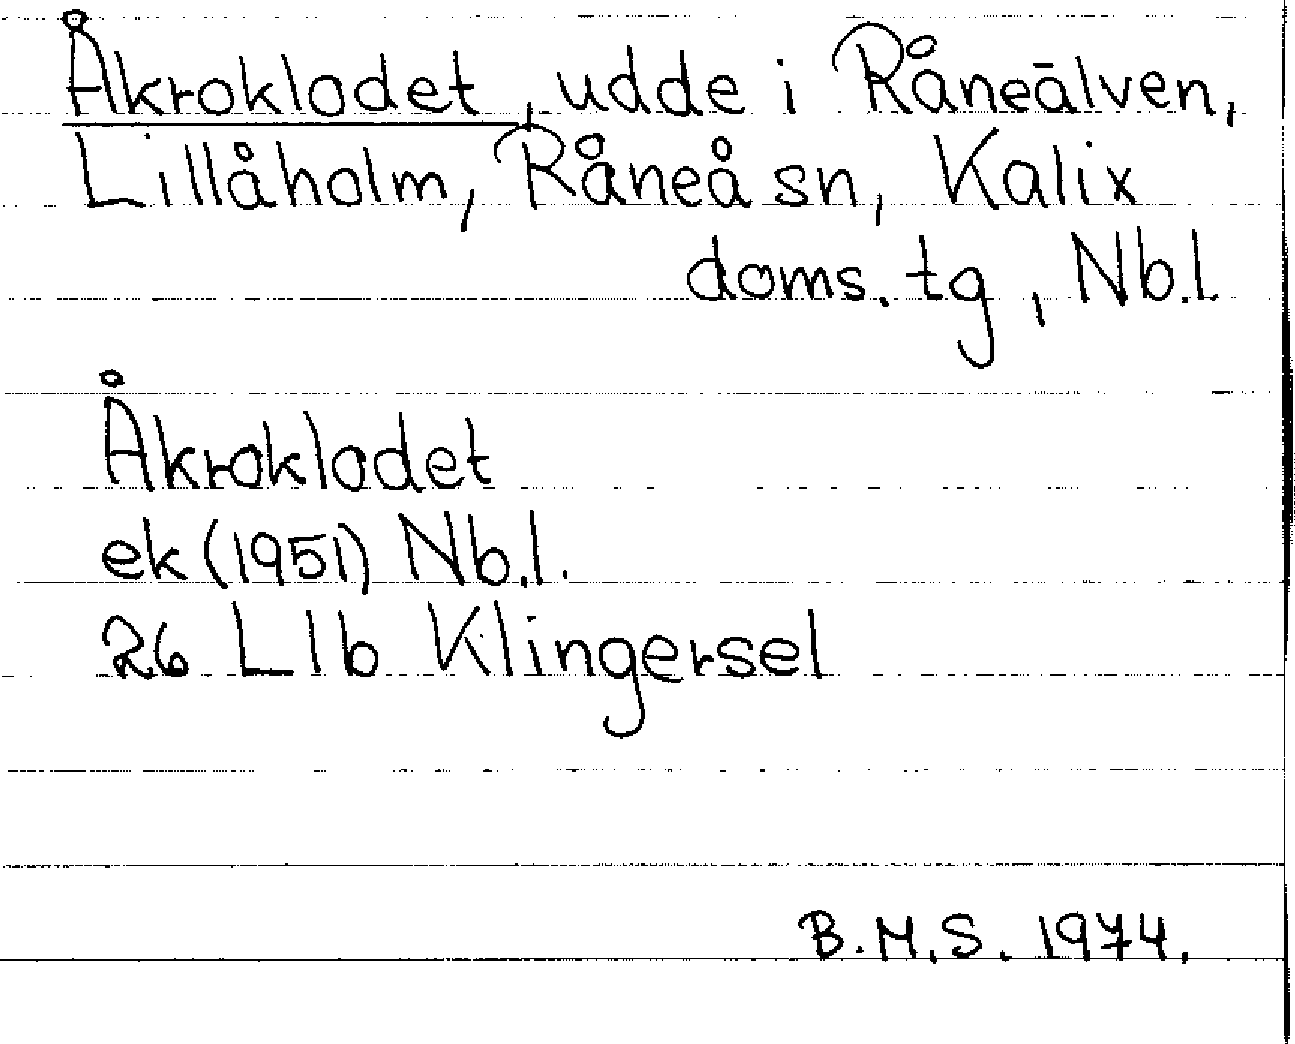 Åkroklodet, udde i Råneälven,
Lillåholm, Råneå sn, Kalix
doms. tg, Nb.l.
Åkroklodet
ek (1951) Nb.l.
26 L1b Klingersel
B.M.S. 1974.